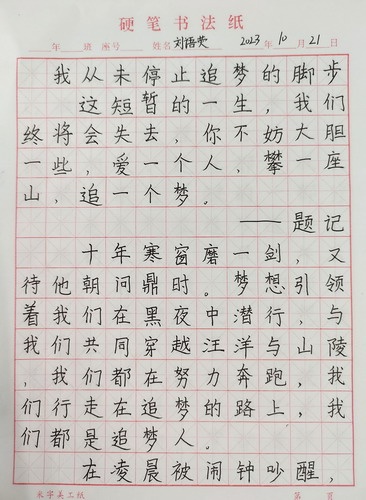 硬笔书法纸
年 班 座号 姓名 刘语荧 2023年10月21日
我从未停止追梦的脚步
这短暂的一生，我们
终将会失去，你不妨大胆
一些，爱一个人，攀一座
山，追一个梦。
——题记
十年寒窗磨一剑，又
待他朝问鼎时。梦想引领
着我们在黑夜中潜行，与
我们共同穿越汪洋与山陵
，我们都在努力奔跑，我
们行走在追梦的路上，我
们都是追梦人。
在凌晨被闹钟吵醒，
米字美工纸 第 页